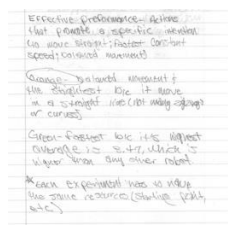 Effective preformance- Actions
that promote a specific intention
(ie move straight; fastest constant
speed; balanced movement)
Orange- balanced movement;
the straightest b/c it move
in a straight line (not making
or curves)
Green- fastest b/c it's highest
average is 8.47, which is
higher than any other robot.
*each experiment has to have
the same resources (starting point,
etc)